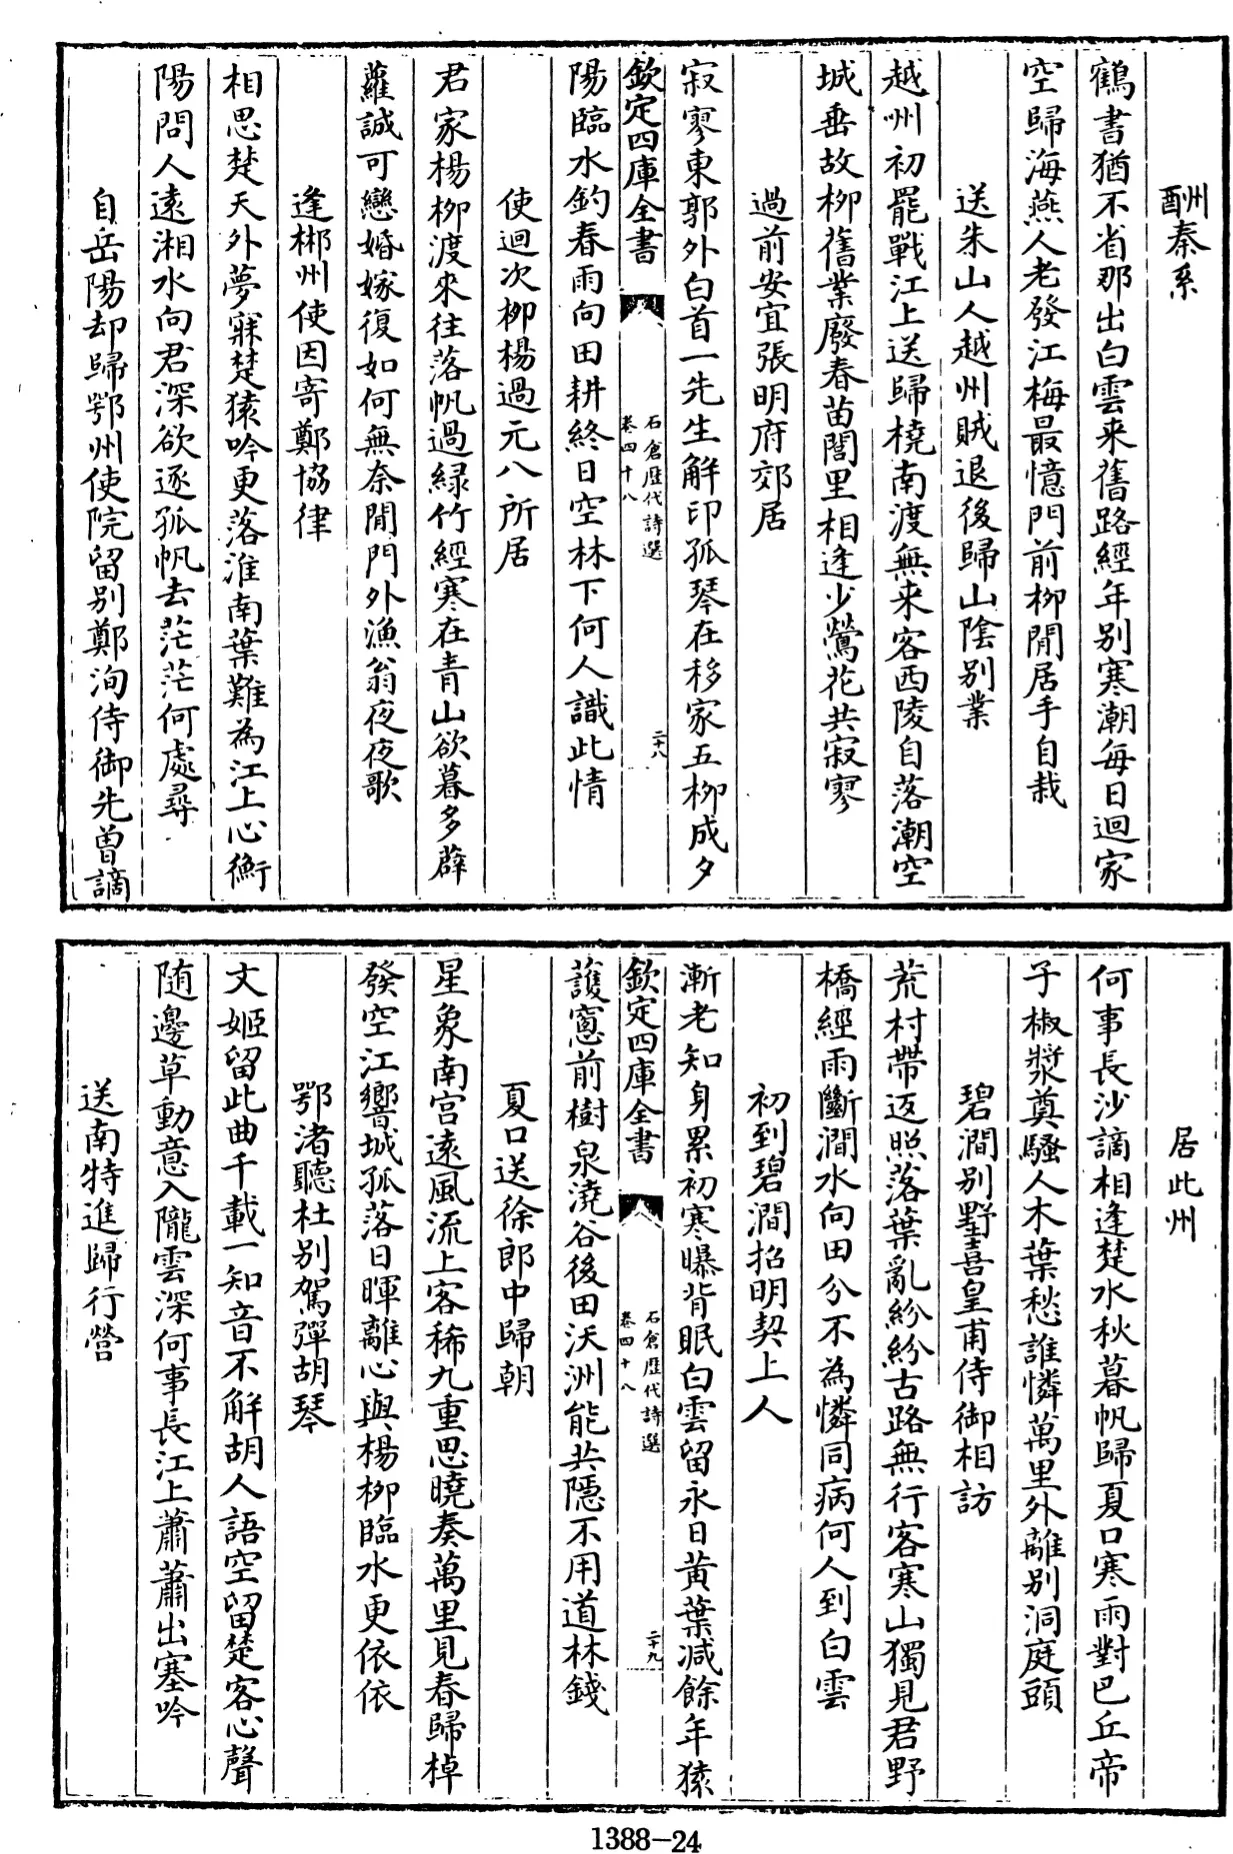 酬秦系
鶴書猶不省那出白雲来舊路經年别寒潮每日迴家
空歸海燕人老發江梅最憶門前栁閒居手自栽
送朱山人越州賊退後歸山隂别業
越州初罷戰江上送歸橈南渡無来客西陵自落潮空
城垂故栁舊業廢春苗閭里相逢少鶯花共寂寥
過前安宜張明府郊居
寂寥東郭外白首一先生解印孤琴在移家五栁成夕
欽定四庫全書
石倉歴代詩選
卷四十八
二十八
陽臨水釣春雨向田耕終日空林下何人識此情
使迴次栁楊過元八所居
君家楊栁渡來往落帆過緑竹經寒在青山欲暮多薜
蘿誠可戀婚嫁復如何無奈閒門外漁翁夜夜歌
逢郴州使因寄鄭協律
相思楚天外夢寐楚猿吟更落淮南葉難為江上心衡
陽問人遠湘水向君深欲逐孤帆去茫茫何處尋
自岳陽却歸鄂州使院留别鄭洵侍御先曽謫
居此州
何事長沙謫相逢楚水秋暮帆歸夏口寒雨對巴丘帝
子椒漿奠騷人木葉愁誰憐萬里外離别洞庭頭
碧澗别墅喜皇甫侍御相訪
荒村帶返照落葉亂紛紛古路無行客寒山獨見君野
橋經雨斷澗水向田分不為憐同病何人到白雲
初到碧澗招明契上人
漸老知身累初寒曝背眠白雲留永日黄葉減餘年猿
欽定四庫全書
石倉歴代詩選
卷四十八
二十九
護窓前樹泉澆谷後田沃洲能共隱不用道林錢
夏口送徐郎中歸朝
星象南宫遠風流上客稀九重思曉奏萬里見春歸棹
發空江響城孤落日暉離心與楊栁臨水更依依
鄂渚聽杜别駕彈胡琴
文姬留此曲千載一知音不解胡人語空留楚客心聲
隨邊草動意入隴雲深何事長江上蕭蕭出塞吟
送南特進歸行營
1388-24